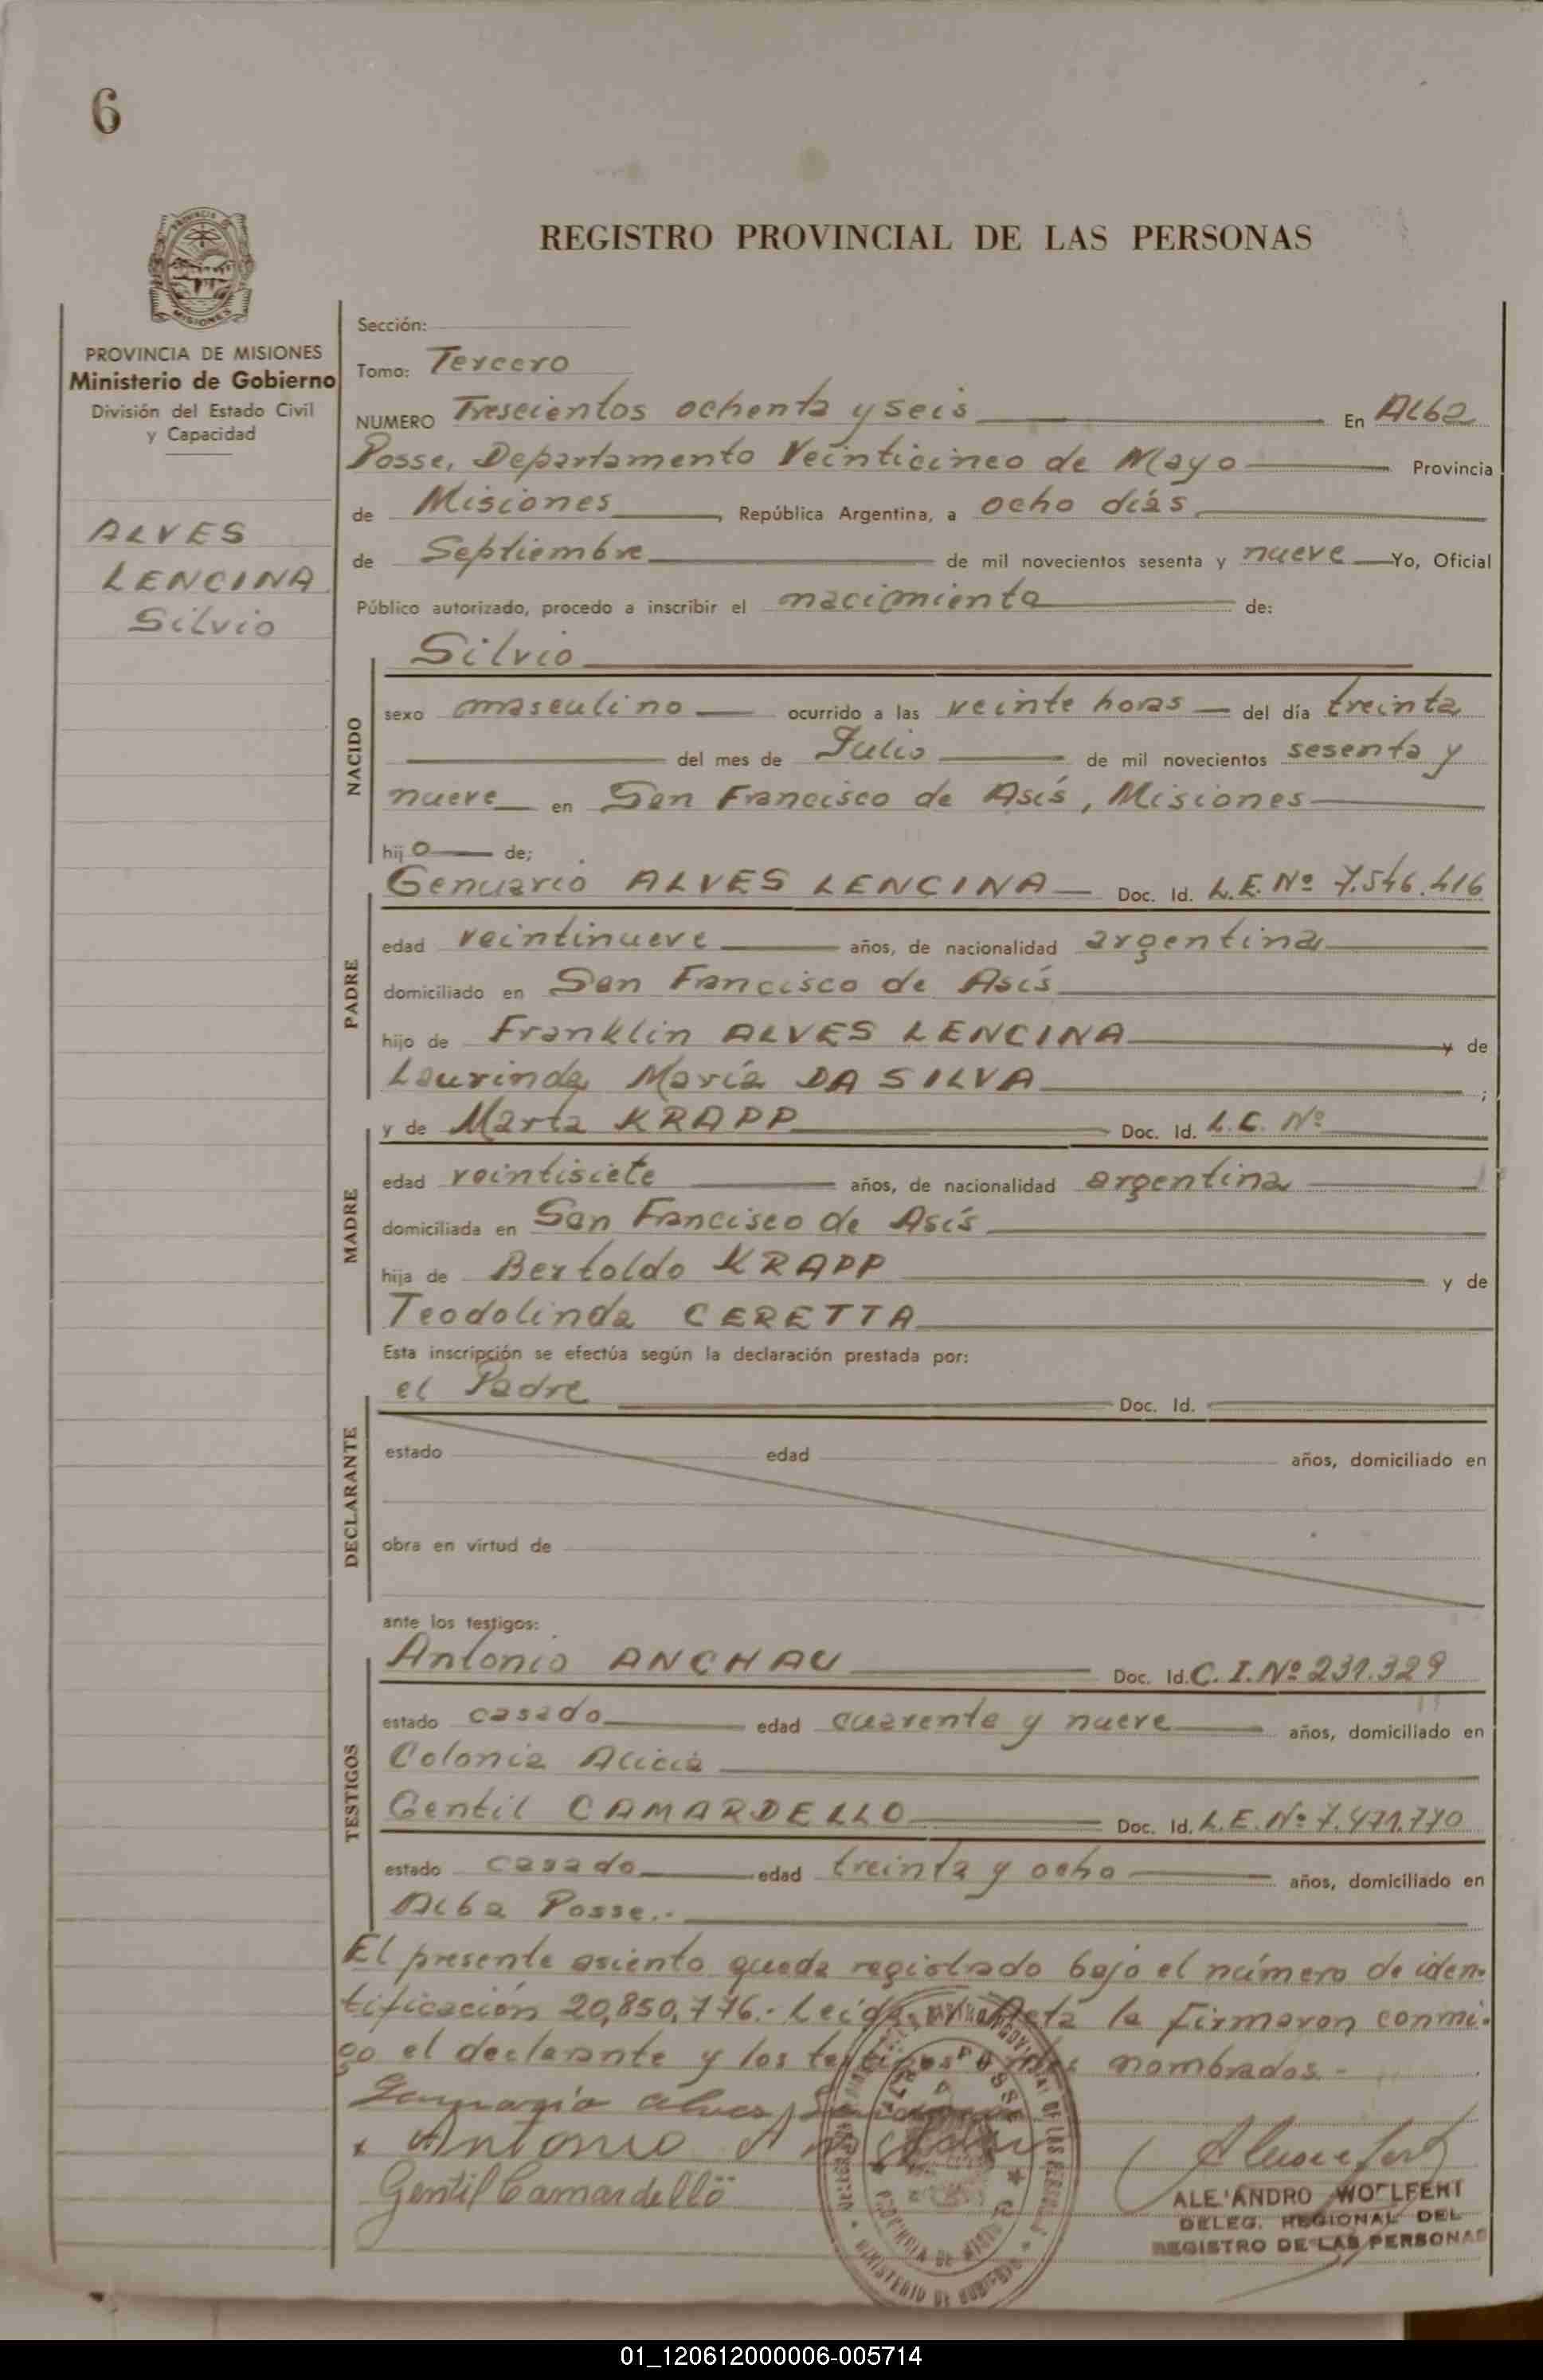 6
REGISTRO PROVINCIAL DE LAS PERSONAS
PROVINCIA DE MISIONES
Ministerio de Gobierno
División del Estado Civil
y Capacidad
ALVES
LENCINA
Silvio
Sección:
Tomo: Tercero
NUMERO Trescientos ochenta y seis En Alba
Posse, Departamento Veinticinco de Mayo Provincia
de Misiones, República Argentina, a ocho días
de Septiembre de mil novecientos sesenta y nueve Yo, Oficial
Público autorizado, procedo a inscribir el nacimiento de:
NACIDO
Silvio
sexo masculino ocurrido a las veinte horas del día treinta
del mes de Julio de mil novecientos sesenta y
nueve en San Francisco de Asís, Misiones
hijo de;
PADRE
Genuario ALVES LENCINA Doc. Id. L.E. Nº 7.546.416
edad veintinueve años, de nacionalidad argentina
domiciliado en San Francisco de Asís
hijo de Franklin ALVES LENCINA y de
Laurinda María DA SILVA ;
MADRE
y de Marta KRAPP Doc. Id. L.C. Nº
edad veintisiete años, de nacionalidad argentina
domiciliada en San Francisco de Asís
hija de Bertoldo KRAPP y de
Teodolinda CERETTA
Esta inscripción se efectúa según la declaración prestada por:
DECLARANTE
el Padre Doc. Id.
estado edad años, domiciliado en
obra en virtud de
ante los testigos:
TESTIGOS
Antonio ANCHAU Doc. Id. C. I. Nº 231.329
estado casado edad cuarenta y nueve años, domiciliado en
Colonia Alicia
Gentil CAMARDELLO Doc. Id. L.E. Nº 7.471.770
estado casado edad treinta y ocho años, domiciliado en
Alba Posse.-
El presente asiento queda registrado bajo el número de iden-
tificación 20,850,776.- Leída el Acta la firmaron conmi-
go el declarante y los testigos antes nombrados.-
alves
Antonio
Gentil Camardello
ALEJANDRO WOLFERT
DELEG. REGIONAL DEL
REGISTRO DE LAS PERSONAS
MINISTERIO DE GOBIERNO
01_120612000006-005714